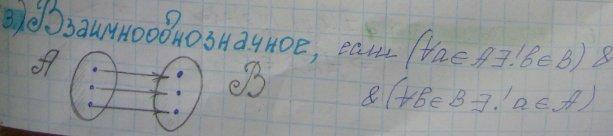 3.) Взаимнооднозначное, если (∀a∈A ∃! b∈B) &
A B & (∀b∈B ∃! a∈A)